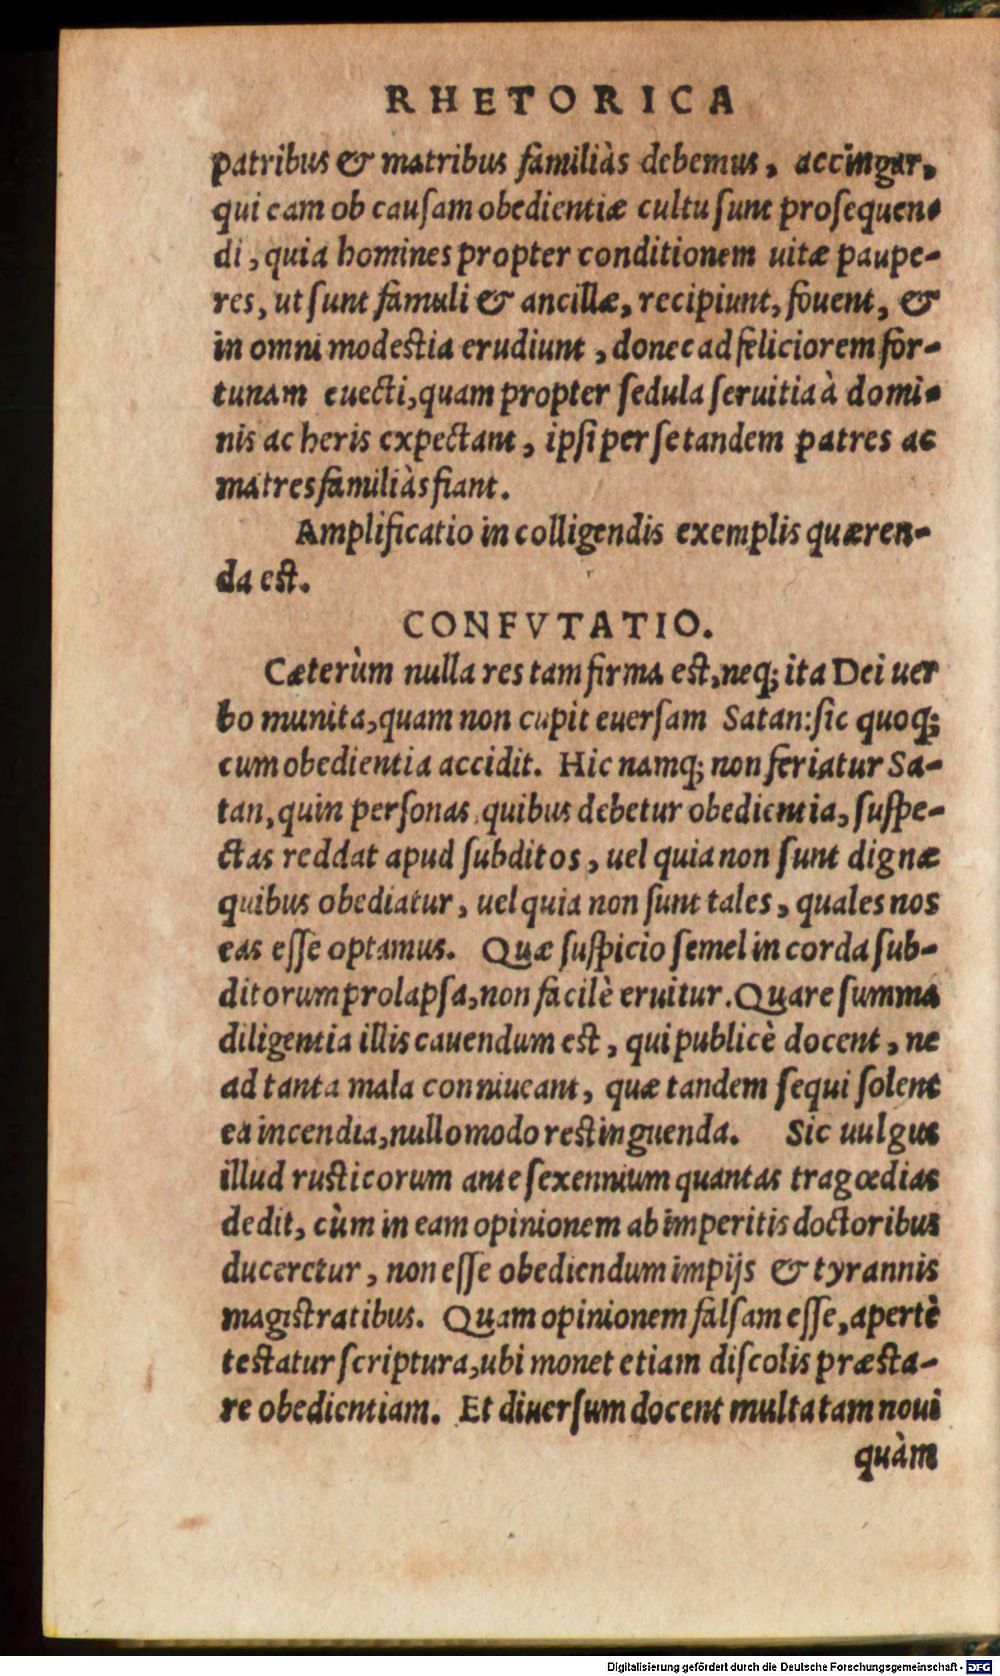 RHETORICA
patribus & matribus familiàs debemus, accingar,
qui eam ob causam obedientiæ cultu sunt prosequen-
di, quia homines propter conditionem uitæ paupe-
res, ut sunt famuli & ancillæ, recipiunt, fouent, &
in omni modestia erudiunt, donec ad feliciorem for-
tunam euecti, quam propter sedula seruitia à domi-
nis ac heris expectant, ipsi per se tandem patres ac
matresfamiliàs fiant.
Amplificatio in colligendis exemplis quæren-
da est.
CONFVTATIO.
Cæterùm nulla res tam firma est, neq; ita Dei uer
bo munita, quam non cupit euersam Satan: sic quoq;
cum obedientia accidit. Hic namq; non feriatur Sa-
tan, quin personas, quibus debetur obedientia, suspe-
ctas reddat apud subditos, uel quia non sunt dignæ
quibus obediatur, uel quia non sunt tales, quales nos
eas esse optamus. Quæ suspicio semel in corda sub-
ditorum prolapsa, non facilè eruitur. Quare summa
diligentia illis cauendum est, qui publicè docent, ne
ad tanta mala conniueant, quæ tandem sequi solent
ea incendia, nullo modo restinguenda. Sic uulgus
illud rusticorum ante sexennium quantas tragœdias
dedit, cùm in eam opinionem ab imperitis doctoribus
duceretur, non esse obediendum impijs & tyrannis
magistratibus. Quam opinionem falsam esse, apertè
testatur scriptura, ubi monet etiam discolis præsta-
re obedientiam. Et diuersum docent multa tam noui
quàm
Digitalisierung gefördert durch die Deutsche Forschungsgemeinschaft - DFG